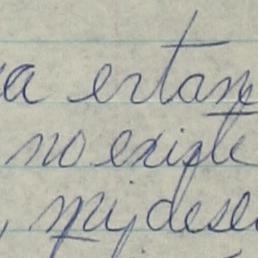 ya estam
no existe
, mi dese